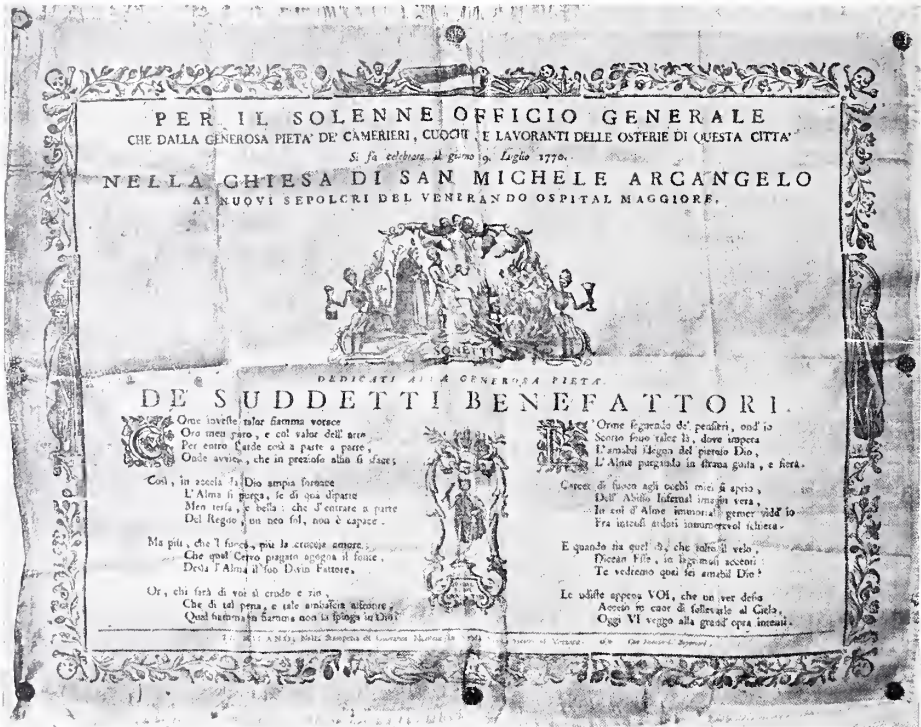 PER IL SOLENNE OFFICIO GENERALE
CHE DALLA GENEROSA PIETA' DE' CAMERIERI, CUOCHI, E LAVORANTI DELLE OSTERIE DI QUESTA CITTA'
Si fa celebrare il giorno 9. Luglio 1770.
NELLA CHIESA DI SAN MICHELE ARCANGELO
AI NUOVI SEPOLCRI DEL VENERANDO OSPITAL MAGGIORE,
SONETTI
DEDICATI ALLA GENEROSA PIETA'
DE' SUDDETTI BENEFATTORI.
Come investe talor fiamma vorace
Oro men puro, e col valor dell' arte
Per entro l'arde così a parte a parte,
Onde avvien, che in prezioso altin si sface;
Così, in accesa da Dio ampia fornace
L'Alma si purga, se di quà diparte
Men tersa, e bella: che d'entrare a parte
Del Regno, un neo sol, non è capace.
Ma più, che 'l fuoco, più la cruccia amore;
Che qual Cervo piagato agogna il fonte,
Desia l'Alma il suo Divin Fattore.
Or, chi sarà di voi sì crudo e rio,
Che di tal pena, e tale ambascia
Qual fiamma in fiamma non la spinga in Dio?
L'Orme seguendo de' pensieri, ond' io
Scorto sono talor là, dove impera
L'amabil sdegno del pietoso Dio,
L'Alme purgando in strana guisa, e fiera.
Carcer di fuoco agli occhi miei si aprìo,
Dell' Abisso Infernal imagin vera,
In cui d'Alme immortali gemer vidd' io
Fra intensi ardori innumerevol schiera.
E quando fia quel dì, che tolto il velo,
Dicean Esse, in lagrimosi accenti:
Te vedremo qual sei amabil Dio?
Le udiste appena VOI, che un ver desio
Acceso in cuor di sollevarle al Cielo,
Oggi VI veggo alla grand' opra intenti.
IN MILANO, Nella Stamperia di